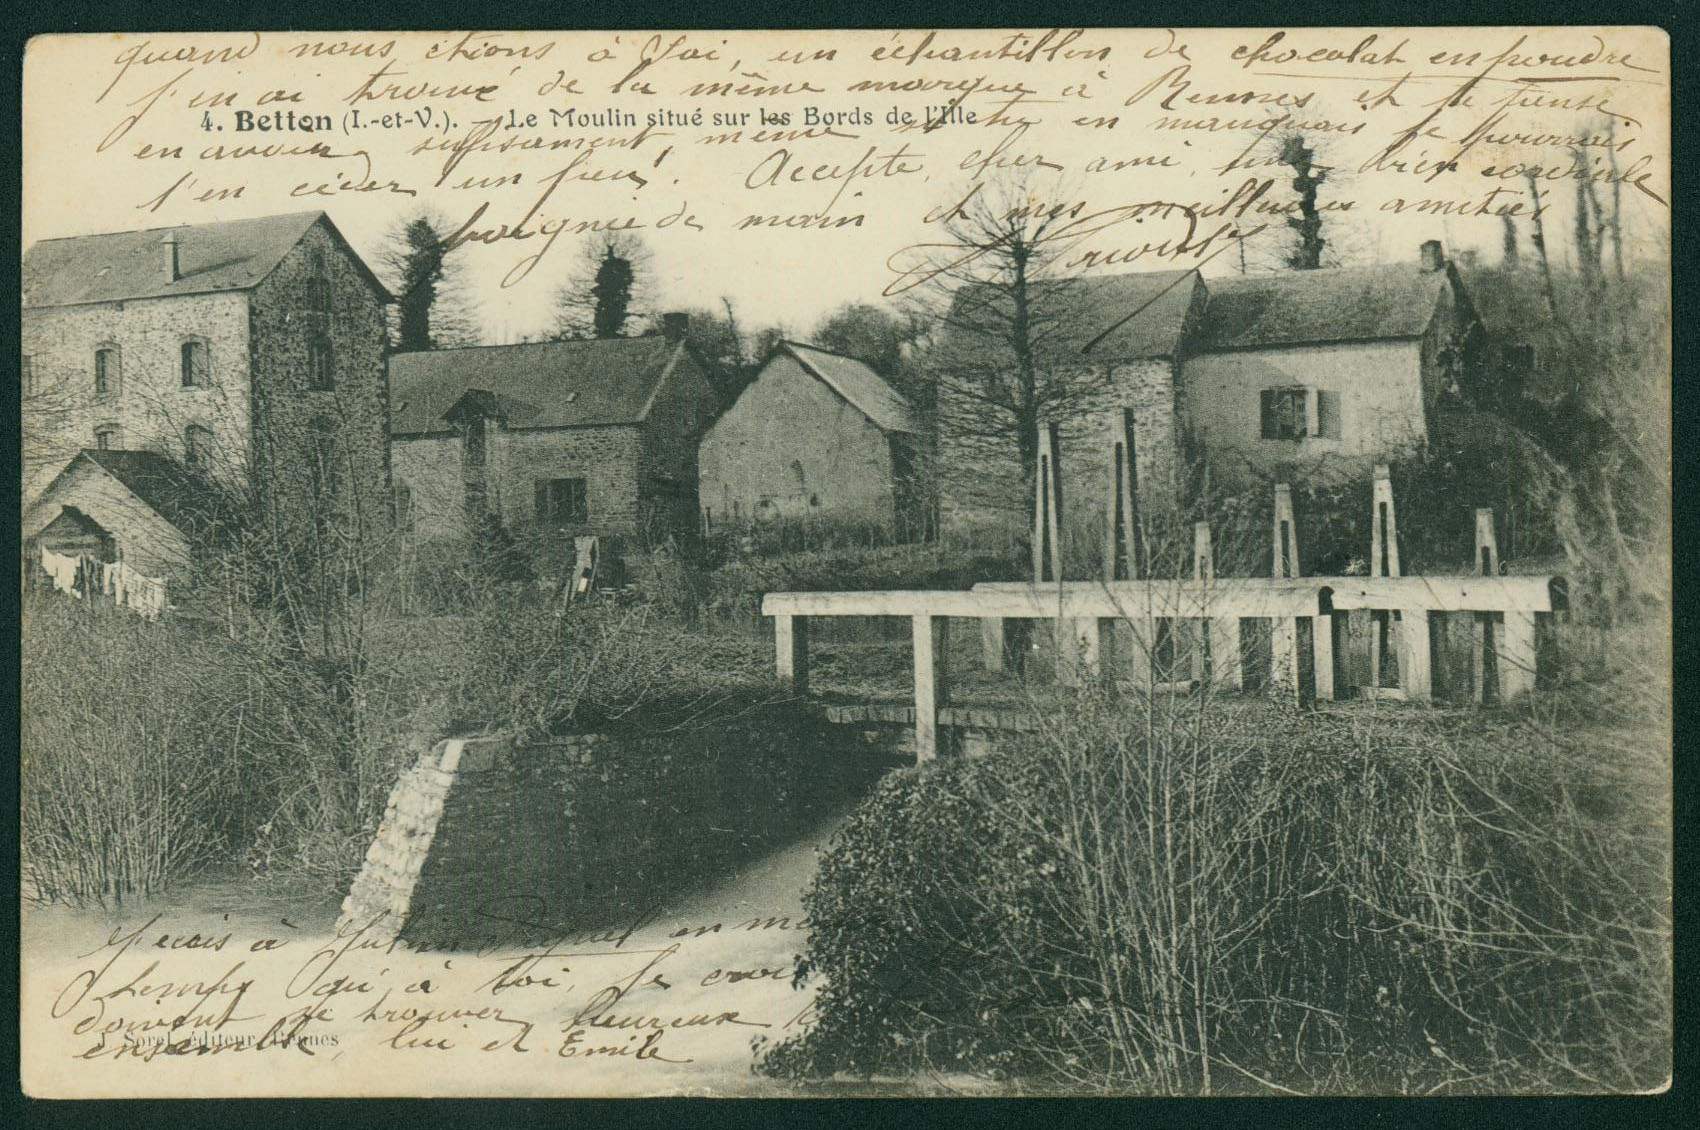 quand nous étions à Toi, un échantillon de chocolat en poudre
j'en ai trouvé de la même marque à Rennes et je pense
4. Betton (I.-et-V.). - Le Moulin situé sur les Bords de l'Ille
en avoir suffisament, même si tu en manquais je pourrais
t'en céder un peu. Accepte, cher ami, une bien cordiale
poignée de main et mes meilleures amitiés
J'écris à en
temps qu'à toi, je crois
doivent se trouver heureux
ensemble, lui et Emile
J. Sorel, éditeur, Rennes